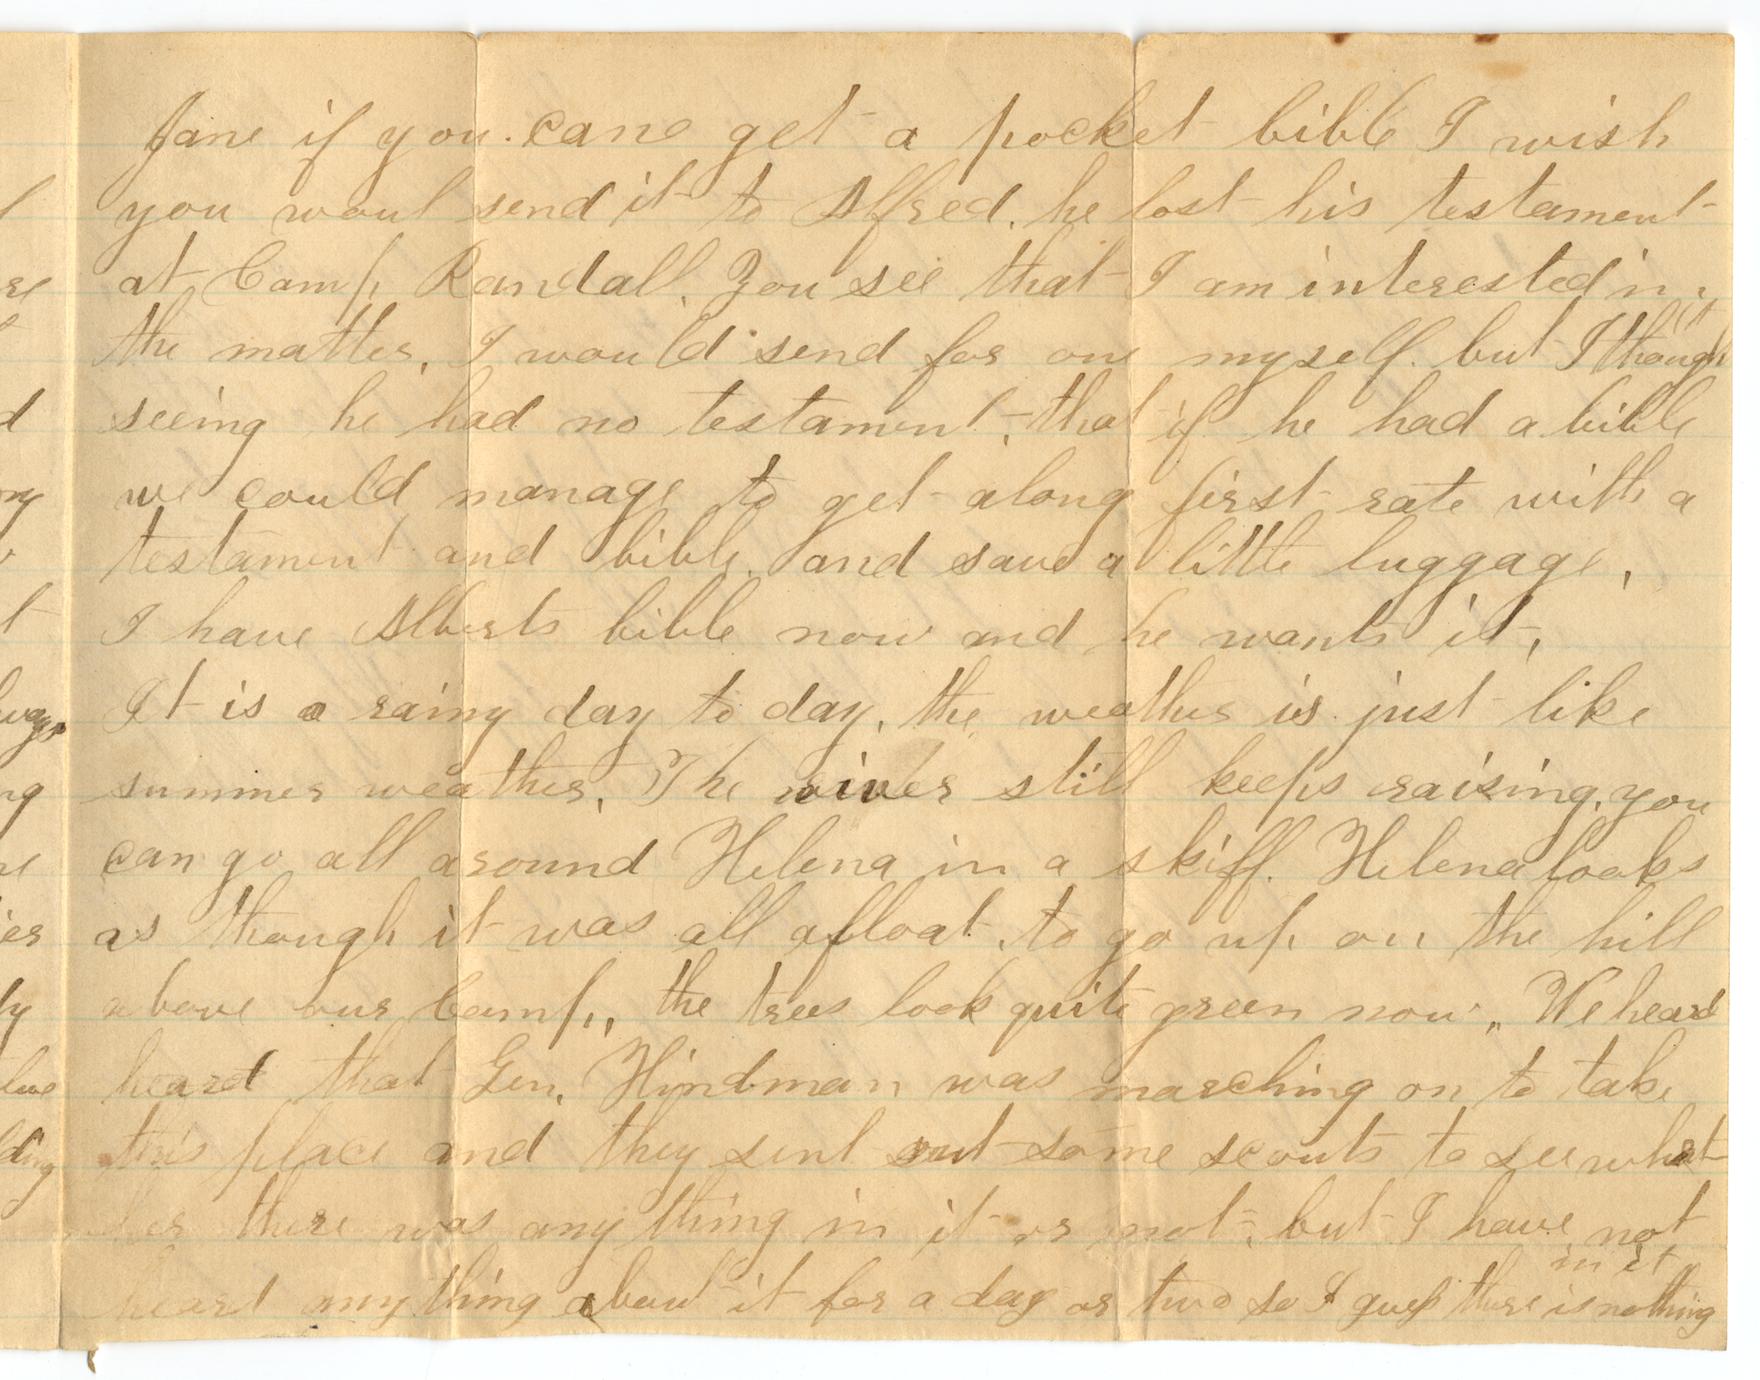 Jane if you. cane get a pocket bible I wish
you woul send it to Alfred. he lost his testament
at Camp Randall. You see that I am interested in
the matter, I would send for one myself. but I though
it
seeing he had no testament, that if he had a bible
we could manage to get along first rate with a
testament and bible. and save a little luggage,
I have Alberts bible now and he wants it,
It is a rainy day to day, the weather is just like
summer weather, The river still keeps raising, you
can go all around Helena in a skiff. Helena looks
as though it was all afloat, to go up on the hill
above our Camp,, the trees look quite green now,, We heard
heard that Gen. Hindman was marching on to take
this place and they sent out some scouts to see what
there was any thing in it or not, but I have not
heard anything about it for a day or two so I guess there is nothing
in it